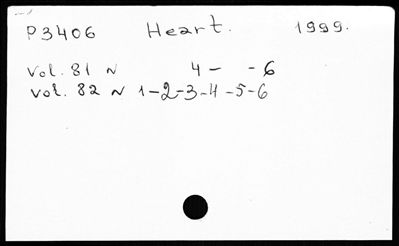 P3406 Heart. 1999.
Vol. 81 N 4 - - 6
Vol. 82 N 1-2-3-4-5-6